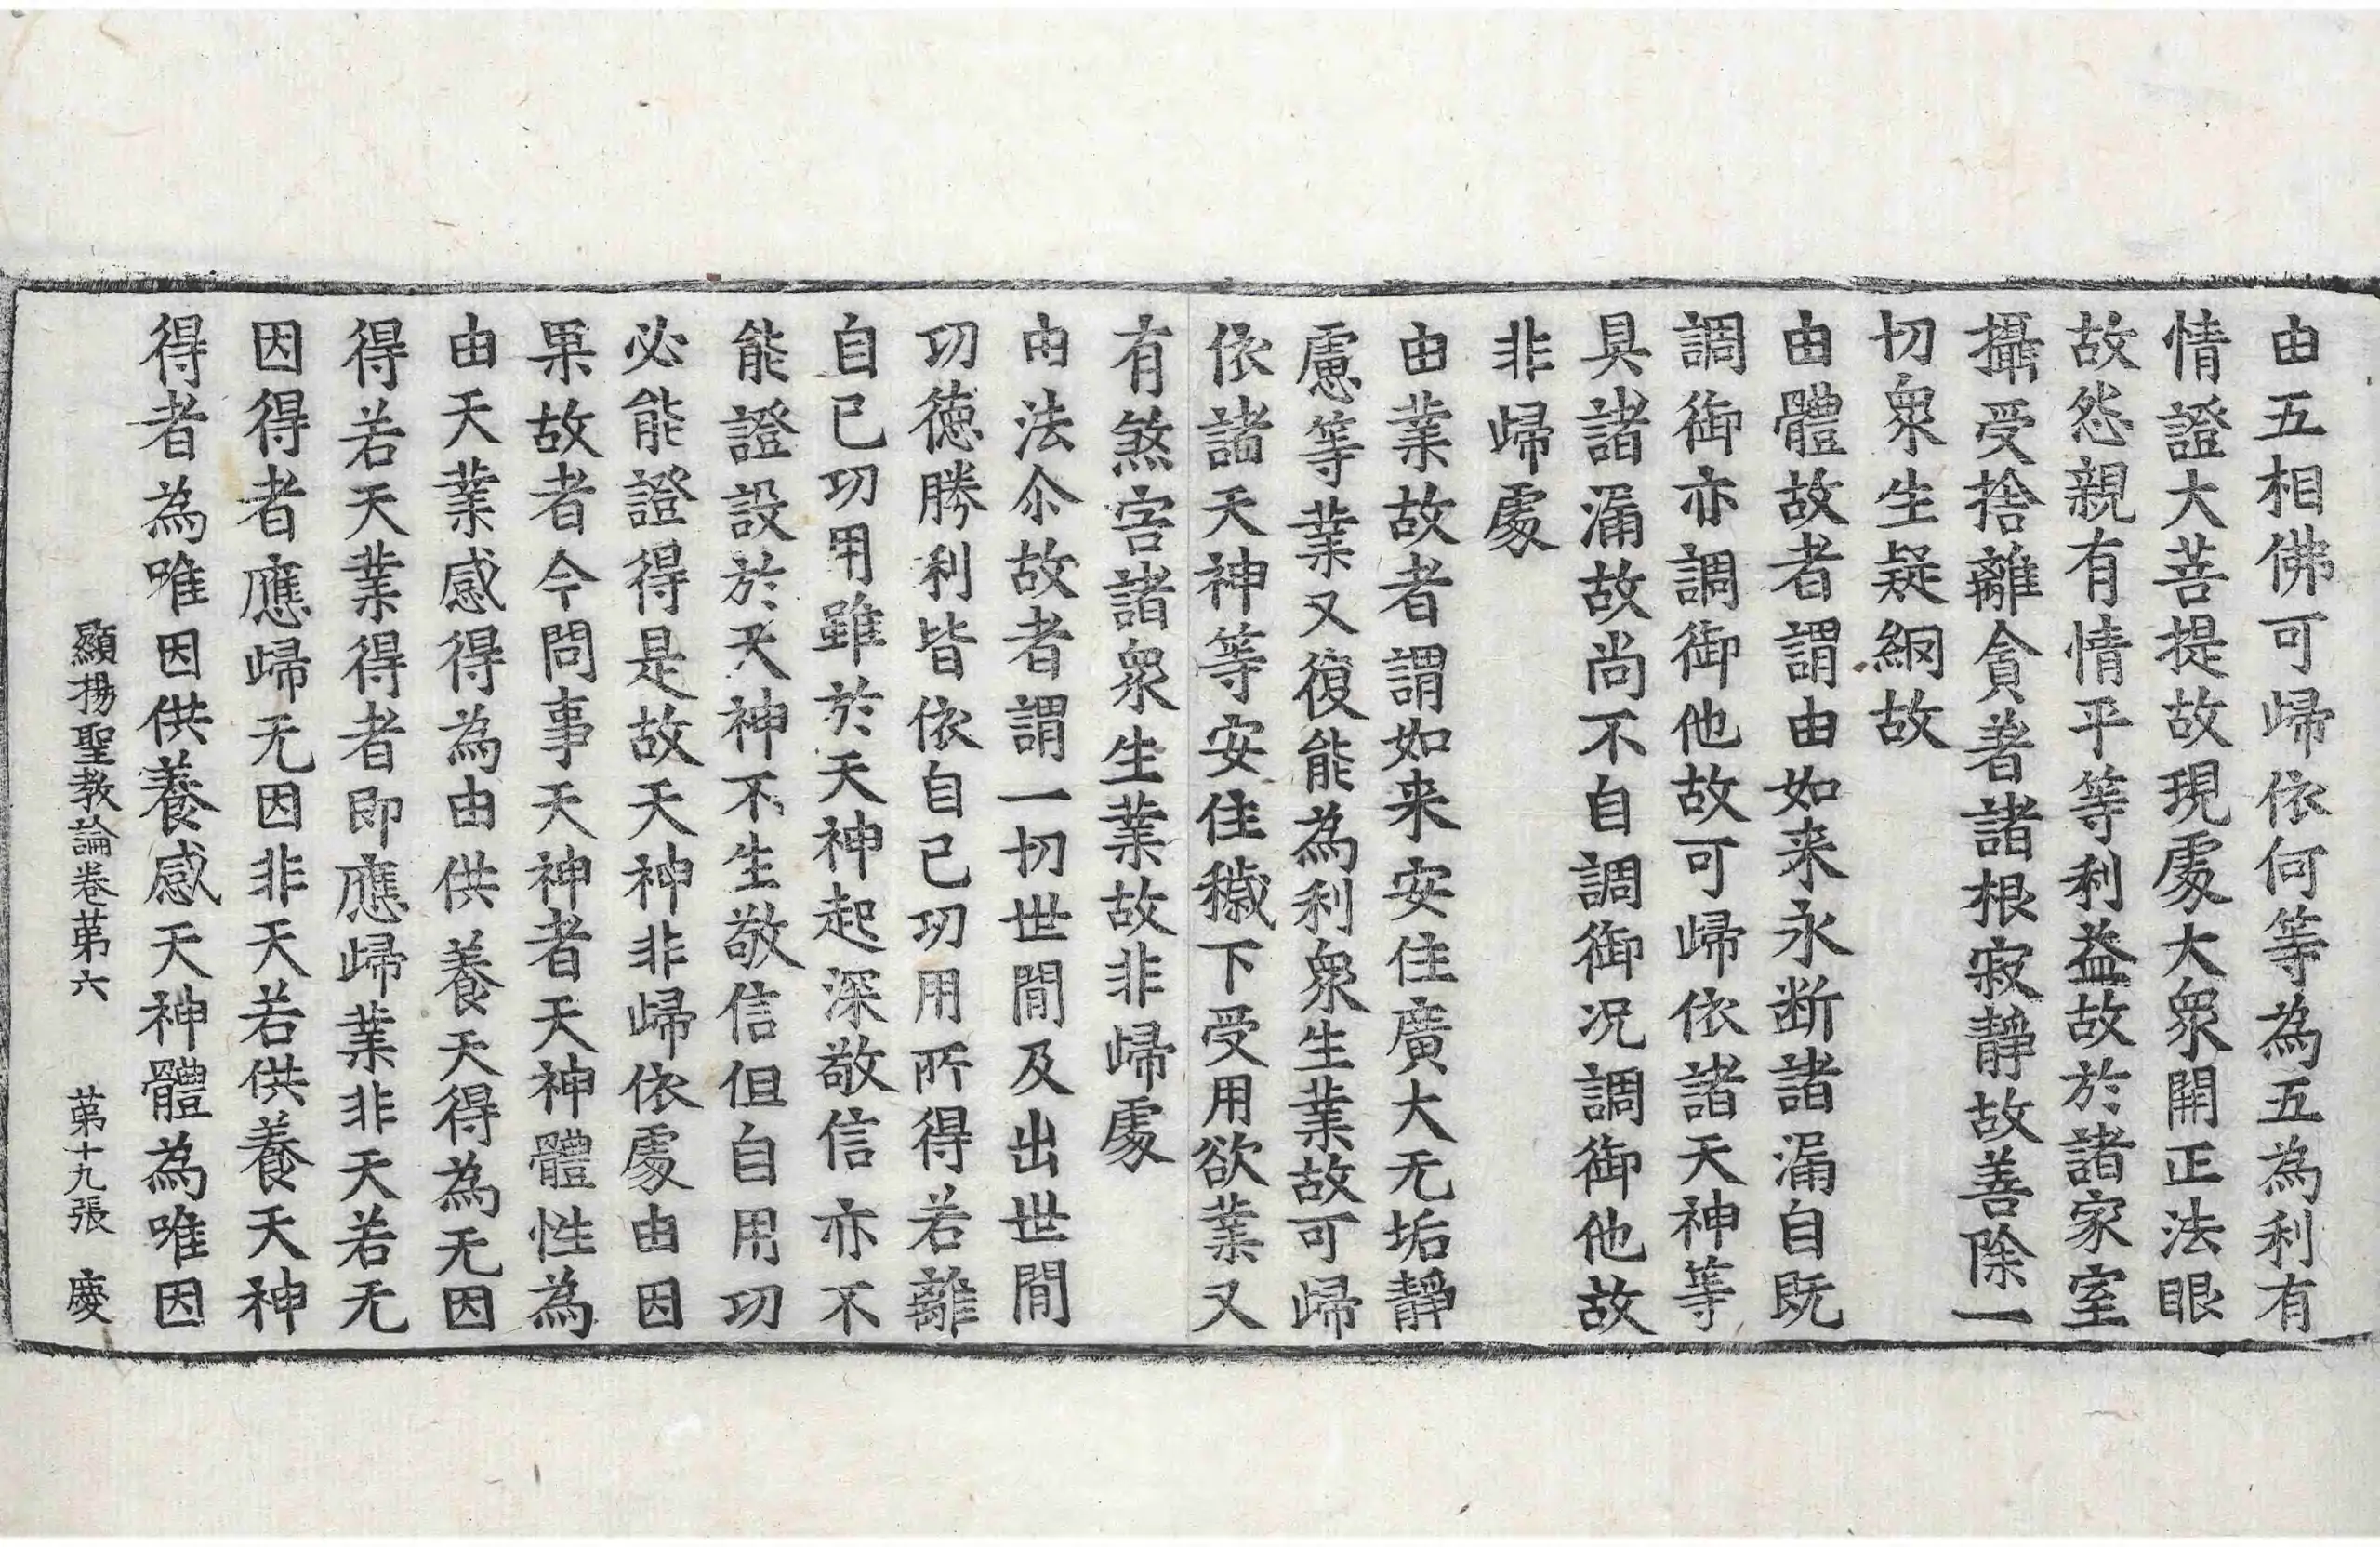 由五相佛可歸依何等為五為利有
情證大菩提故現處大衆開正法眼
故怨親有情平等利益故於諸家室
攝受捨離貪著諸根寂靜故善除一
切衆生疑網故
由體故者謂由如来永断諸漏自既
調御亦調御他故可歸依諸天神等
具諸漏故尚不自調御况調御他故
非歸處
由業故者謂如来安住廣大无垢靜
慮等業又復能為利衆生業故可歸
依諸天神等安住穢下受用欲業又
有煞害諸衆生業故非歸處
由法尒故者謂一切世間及出世間
功德勝利皆依自己功用所得若離
自己功用雖於天神起深敬信亦不
能證設於天神不生敬信但自用功
必能證得是故天神非歸依處由因
果故者今問事天神者天神體性為
由天業感得為由供養天得為无因
得若天業得者即應歸業非天若无
因得者應歸无因非天若供養天神
得者為唯因供養感天神體為唯因
顯揚聖教論卷苐六 苐十九張 慶